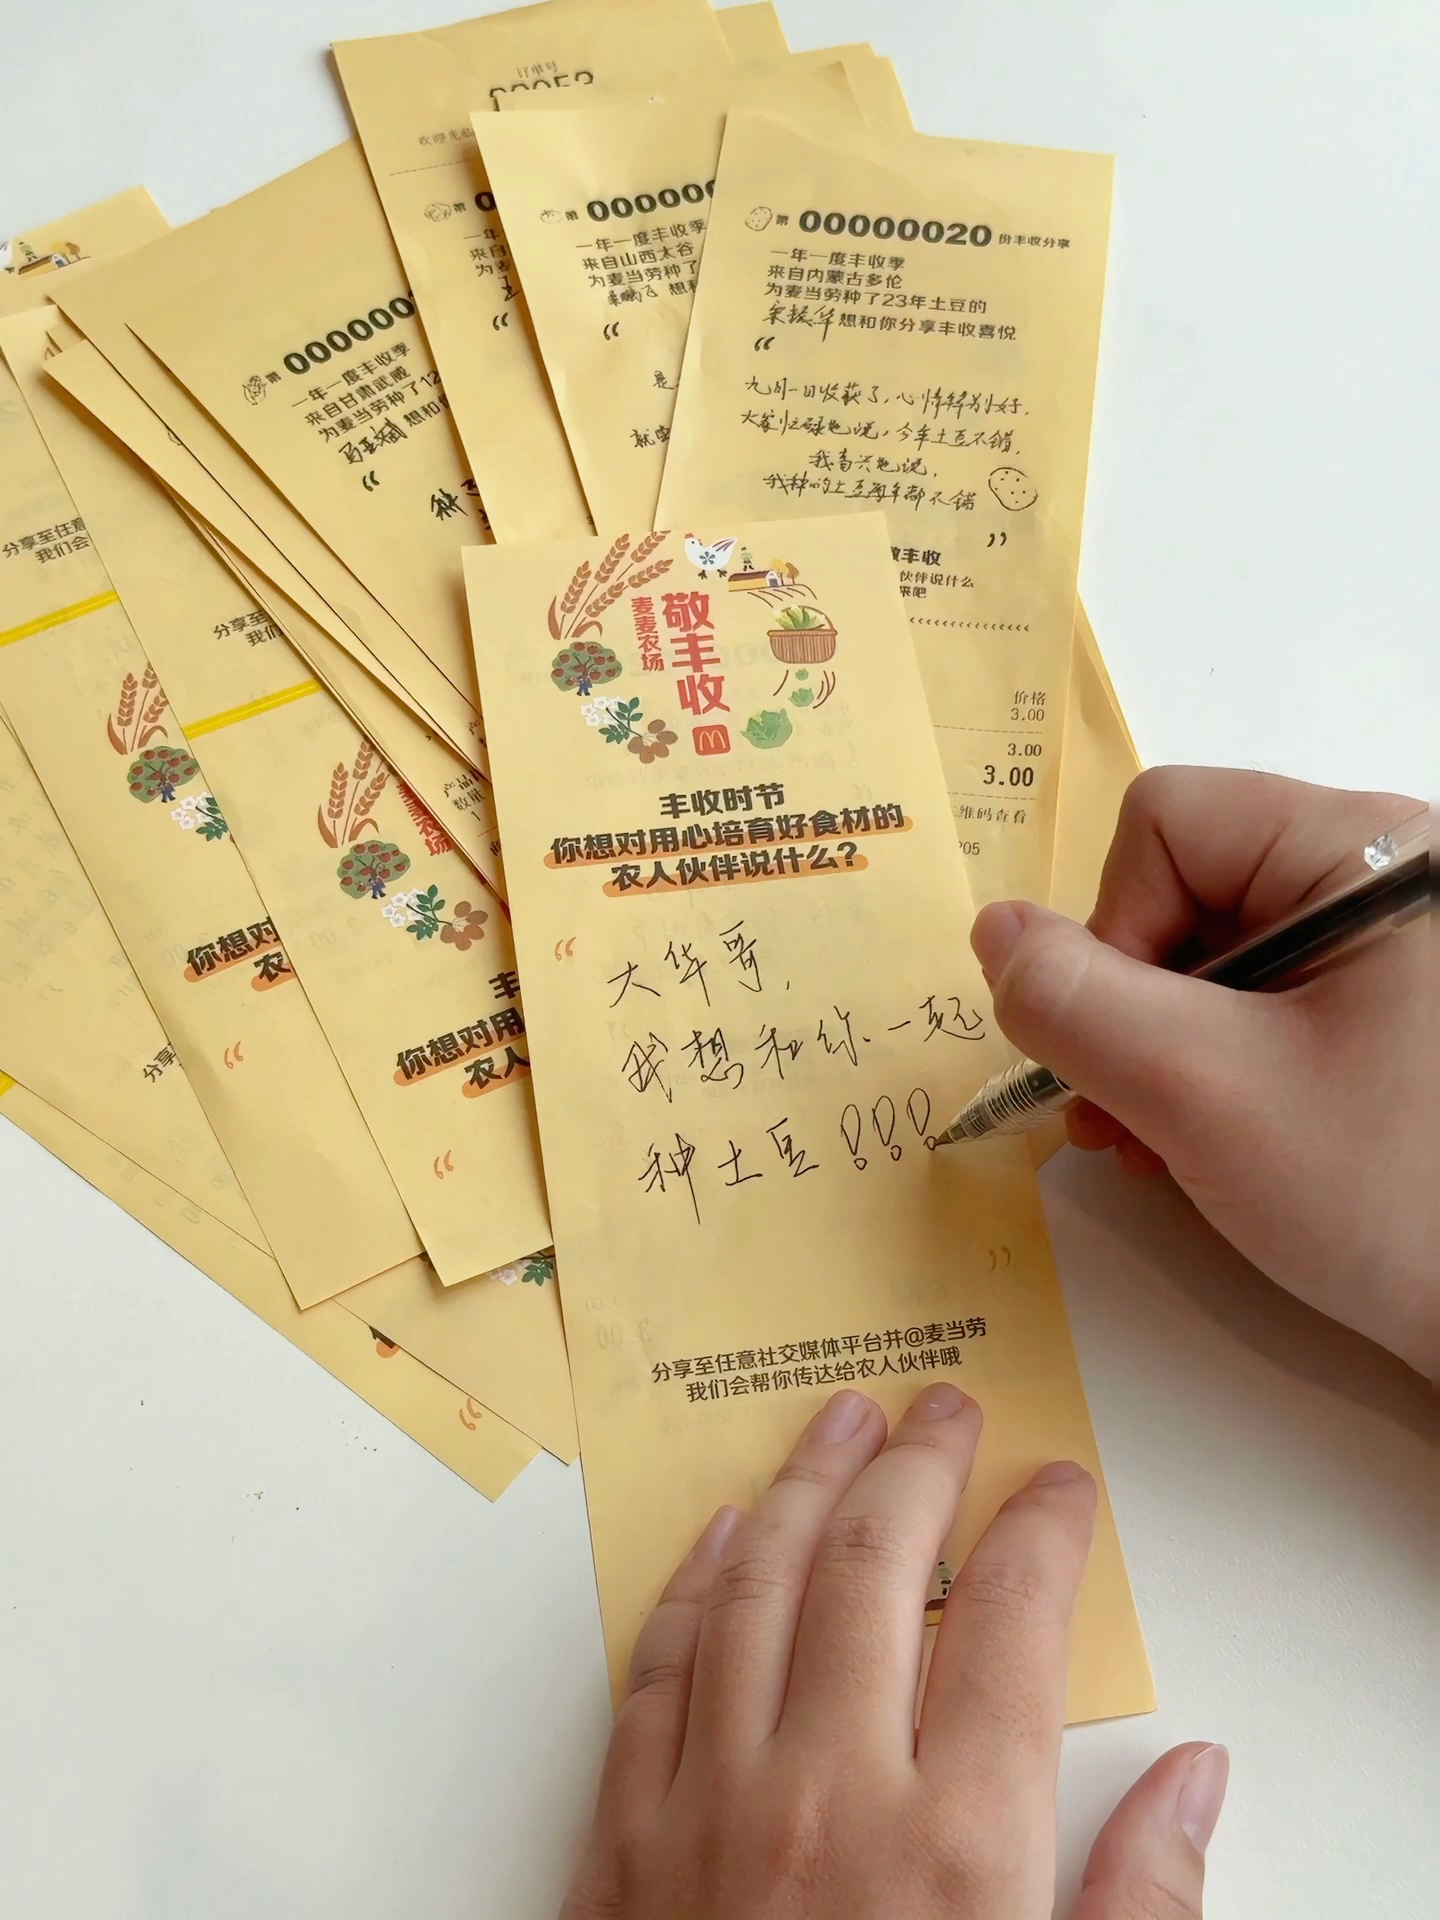 订单号
欢迎光临
第
一年
来自
为麦
第 000000
一年一度丰收季
来自山西太谷
为麦当劳种了
想和
“
是
就
第 00000020 份丰收分享
一年一度丰收季
来自内蒙古多伦
为麦当劳种了23年土豆的
宋振华想和你分享丰收喜悦
“
九月一日收获了,心情特别好,
大家忙碌地说,今年土豆不错,
我高兴地说,
我种的土豆每年都不错
”
敬丰收
伙伴说什么
来吧
价格
3.00
3.00
3.00
维码查看
205
第 0000000
一年一度丰收季
来自甘肃武威
为麦当劳种了12
想和
“
种
分享至任意
我们会
分享至
我们
产品
数量
1
麦麦农场
你想对
农
“
分享
丰
你想对用
农人
“
敬丰收
麦麦农场
丰收时节
你想对用心培育好食材的
农人伙伴说什么?
“
大华哥,
我想和你一起
种土豆!!!
”
分享至任意社交媒体平台并@麦当劳
我们会帮你传达给农人伙伴哦